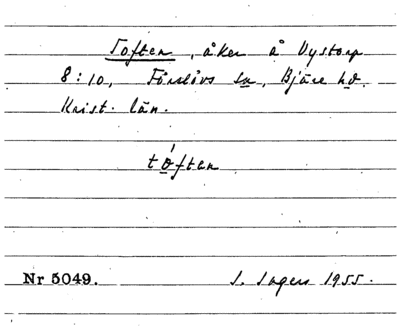 Toften, åker å Vystorp
8:10, Förslövs sn, Bjäre hd.
Krist. län.
tóften
Nr 5049.
S. Ingers 1955.